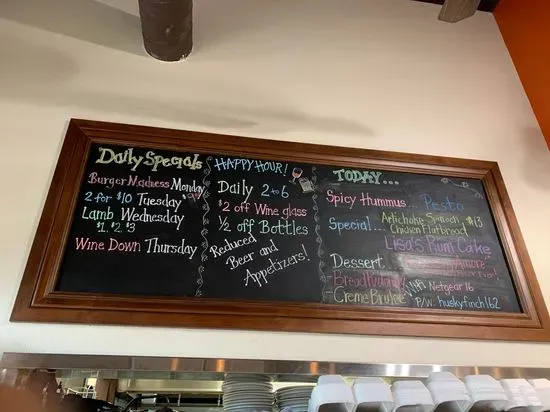 Daily Specials
Burger Madness Monday
2 for $10 Tuesday
Lamb Wednesday
$1, $2, $3
Wine Down Thursday
HAPPY HOUR!
Daily 2 to 6
$2 off Wine glass
½ off Bottles
Reduced
Beer and
Appetizers!
TODAY...
Spicy Hummus... Pesto
Special... Artichoke Spinach $13
Chicken Flatbread
Lisa's Rum Cake
Dessert
Bread Pudding
- Creme Brulee
WiFi Netgear16
P/W: huskyfinch162